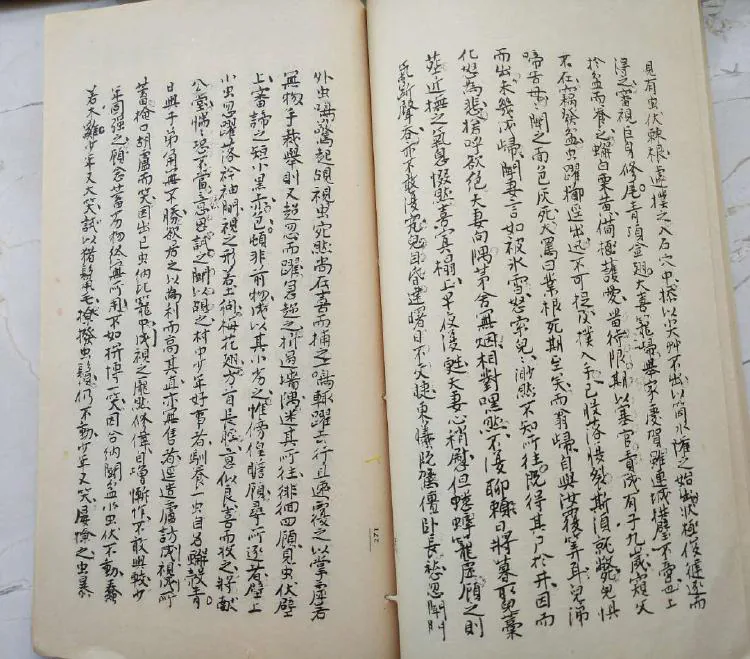 見有虫伏棘根遽撲之入石穴中掭以尖艸不出以筒水灌之始出狀極俊健逐而
得之審視巨身修尾青項金翅大喜籠歸舉家慶賀雖連城拱璧不啻也上
於盆而養之蟹白栗黄備極護愛留待限期以塞官責成有子九歲窺父
不在竊發盆虫躍擲徑出迅不可捉及撲入手已股落腹裂斯須就斃兒惧
啼告母母聞之面色灰死大罵曰業根死期至矣而翁歸自與汝覆筭耳兒涕
而出未幾成歸聞妻言如被氷雪怒索兒兒渺然不知所往既得其尸於井因而
化怒為悲搶呼欲絕夫妻向隅茅舍無烟相對嘿然不復聊賴日將暮取兒藁
葬近撫之氣息惙然喜寘榻上半夜復甦夫妻心稍慰但蟋蟀籠虛顧之則
氣斷聲吞亦不敢復究兒自昏達曙目不交睫東曦既駕僵卧長愁忽聞門
271
外虫鳴驚起覘視虫宛然尚在喜而捕之一鳴輒躍去行且速覆之以掌虛若
無物手裁舉則又超忽而躍急趁之折過墻隅迷其所往徘徊四顧見虫伏壁
上審諦之短小黑赤色頓非前物成以其小劣之惟傍徨瞻顧尋所逐者壁上
小虫忽躍落衿袖間視之形若土狗梅花翅方首長脛意似良喜而收之將獻
公堂惴惴恐不當意思試之鬬以覘之村中少年好事者馴養一虫自名蟹殼青
日與子弟角無不勝欲居之以為利而高其直亦無售者逕造廬訪成視成所
蓄掩口胡盧而笑因出己虫納比籠中成視之龐然修偉自增慚怍不敢與較少
年固強之顧念蓄劣物終無所用不如拚博一笑因合納鬬盆小虫伏不動蠢
若木雞少年又大笑試以猪鬣毛撩撥虫鬚仍不動少年又笑屢撩之虫暴